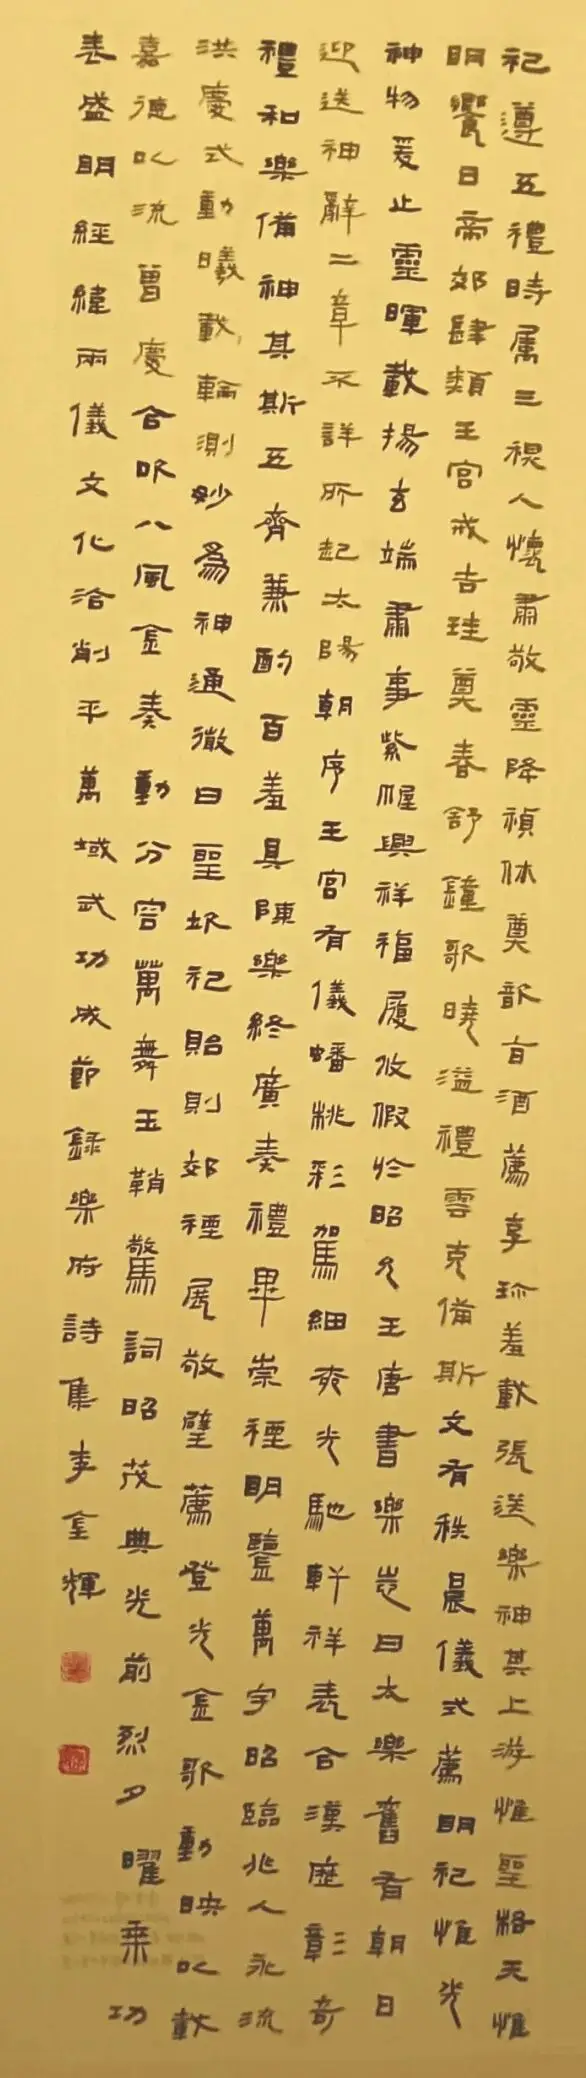 祀遵五禮時属三人懷肅敬靈降禎休奠歆旨酒薦享珍羞載張送樂神其上游惟聖格天惟
明饗日帝郊肆類王宮戒吉珪奠春舒鐘歌曉溢禮雲克備斯文有秩晨儀式薦明祀惟光
神物爰止靈暉載揚玄端肅事紫幄興祥福履攸假於昭允王唐書樂志曰太樂舊有朝日
迎送神辭二章不詳所起太陽朝序王宮有儀蟠桃彩駕細爽光馳軒祥表合漢歷彰奇
禮和樂備神其斯五齊兼酌百羞具陳樂終廣奏禮畢崇禋明鑒萬宇昭臨兆人永流
洪慶式動曦載輪測妙為神通微曰聖坎祀貽則郊禋展敬璧薦登光金歌動映以載
嘉德以流曾慶合吹八風金奏動分容萬舞玉鞘驚詞昭茂典光前烈夕曜乘功
表盛明經緯兩儀文化洽削平萬域武功成節錄樂府詩集李金輝